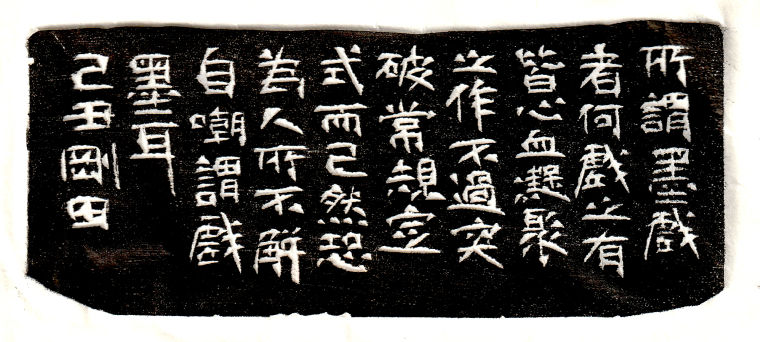 所謂墨戲
者何戲之有
皆心血凝聚
之作不過突
破常規定
式而已然恐
為人所不解
自嘲謂戲
墨耳
己丑剛